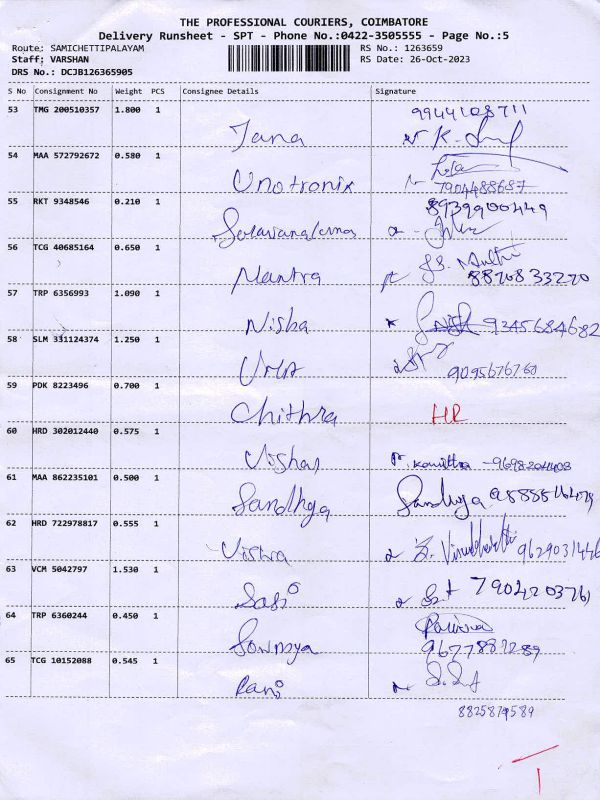 THE PROFESSIONAL COURIERS, COIMBATORE
Delivery Runsheet - SPT - Phone No.:0422-3505555 - Page No.:5
Route: SAMICHETTIPALAYAM RS No.: 1263659
Staff: VARSHAN RS Date: 26-Oct-2023
DRS No.: DCJB126365905
S No Consignment No Weight PCS Consignee Details Signature
53 TMG 200510357 1.800 1 9944108711
Jana K.
54 MAA 572792672 0.580 1
Unotronix 7904488687
55 RKT 9348546 0.210 1 8939900449
56 TCG 40685164 0.650 1
Mantra 8870833220
57 TRP 6356993 1.090 1
Nisha 9345684682
58 SLM 331124374 1.250 1
UMA 9095676760
59 PDK 8223496 0.700 1
Chithra HR
60 HRD 302012440 0.575 1
Vishal
61 MAA 862235101 0.500 1
Sandhya Sandhya
62 HRD 722978817 0.555 1
9629031446
63 VCM 5042797 1.530 1
Sasi 7904220376
64 TRP 6360244 0.450 1
Sowmya 9677889289
65 TCG 10152088 0.545 1
Rani
8825879589